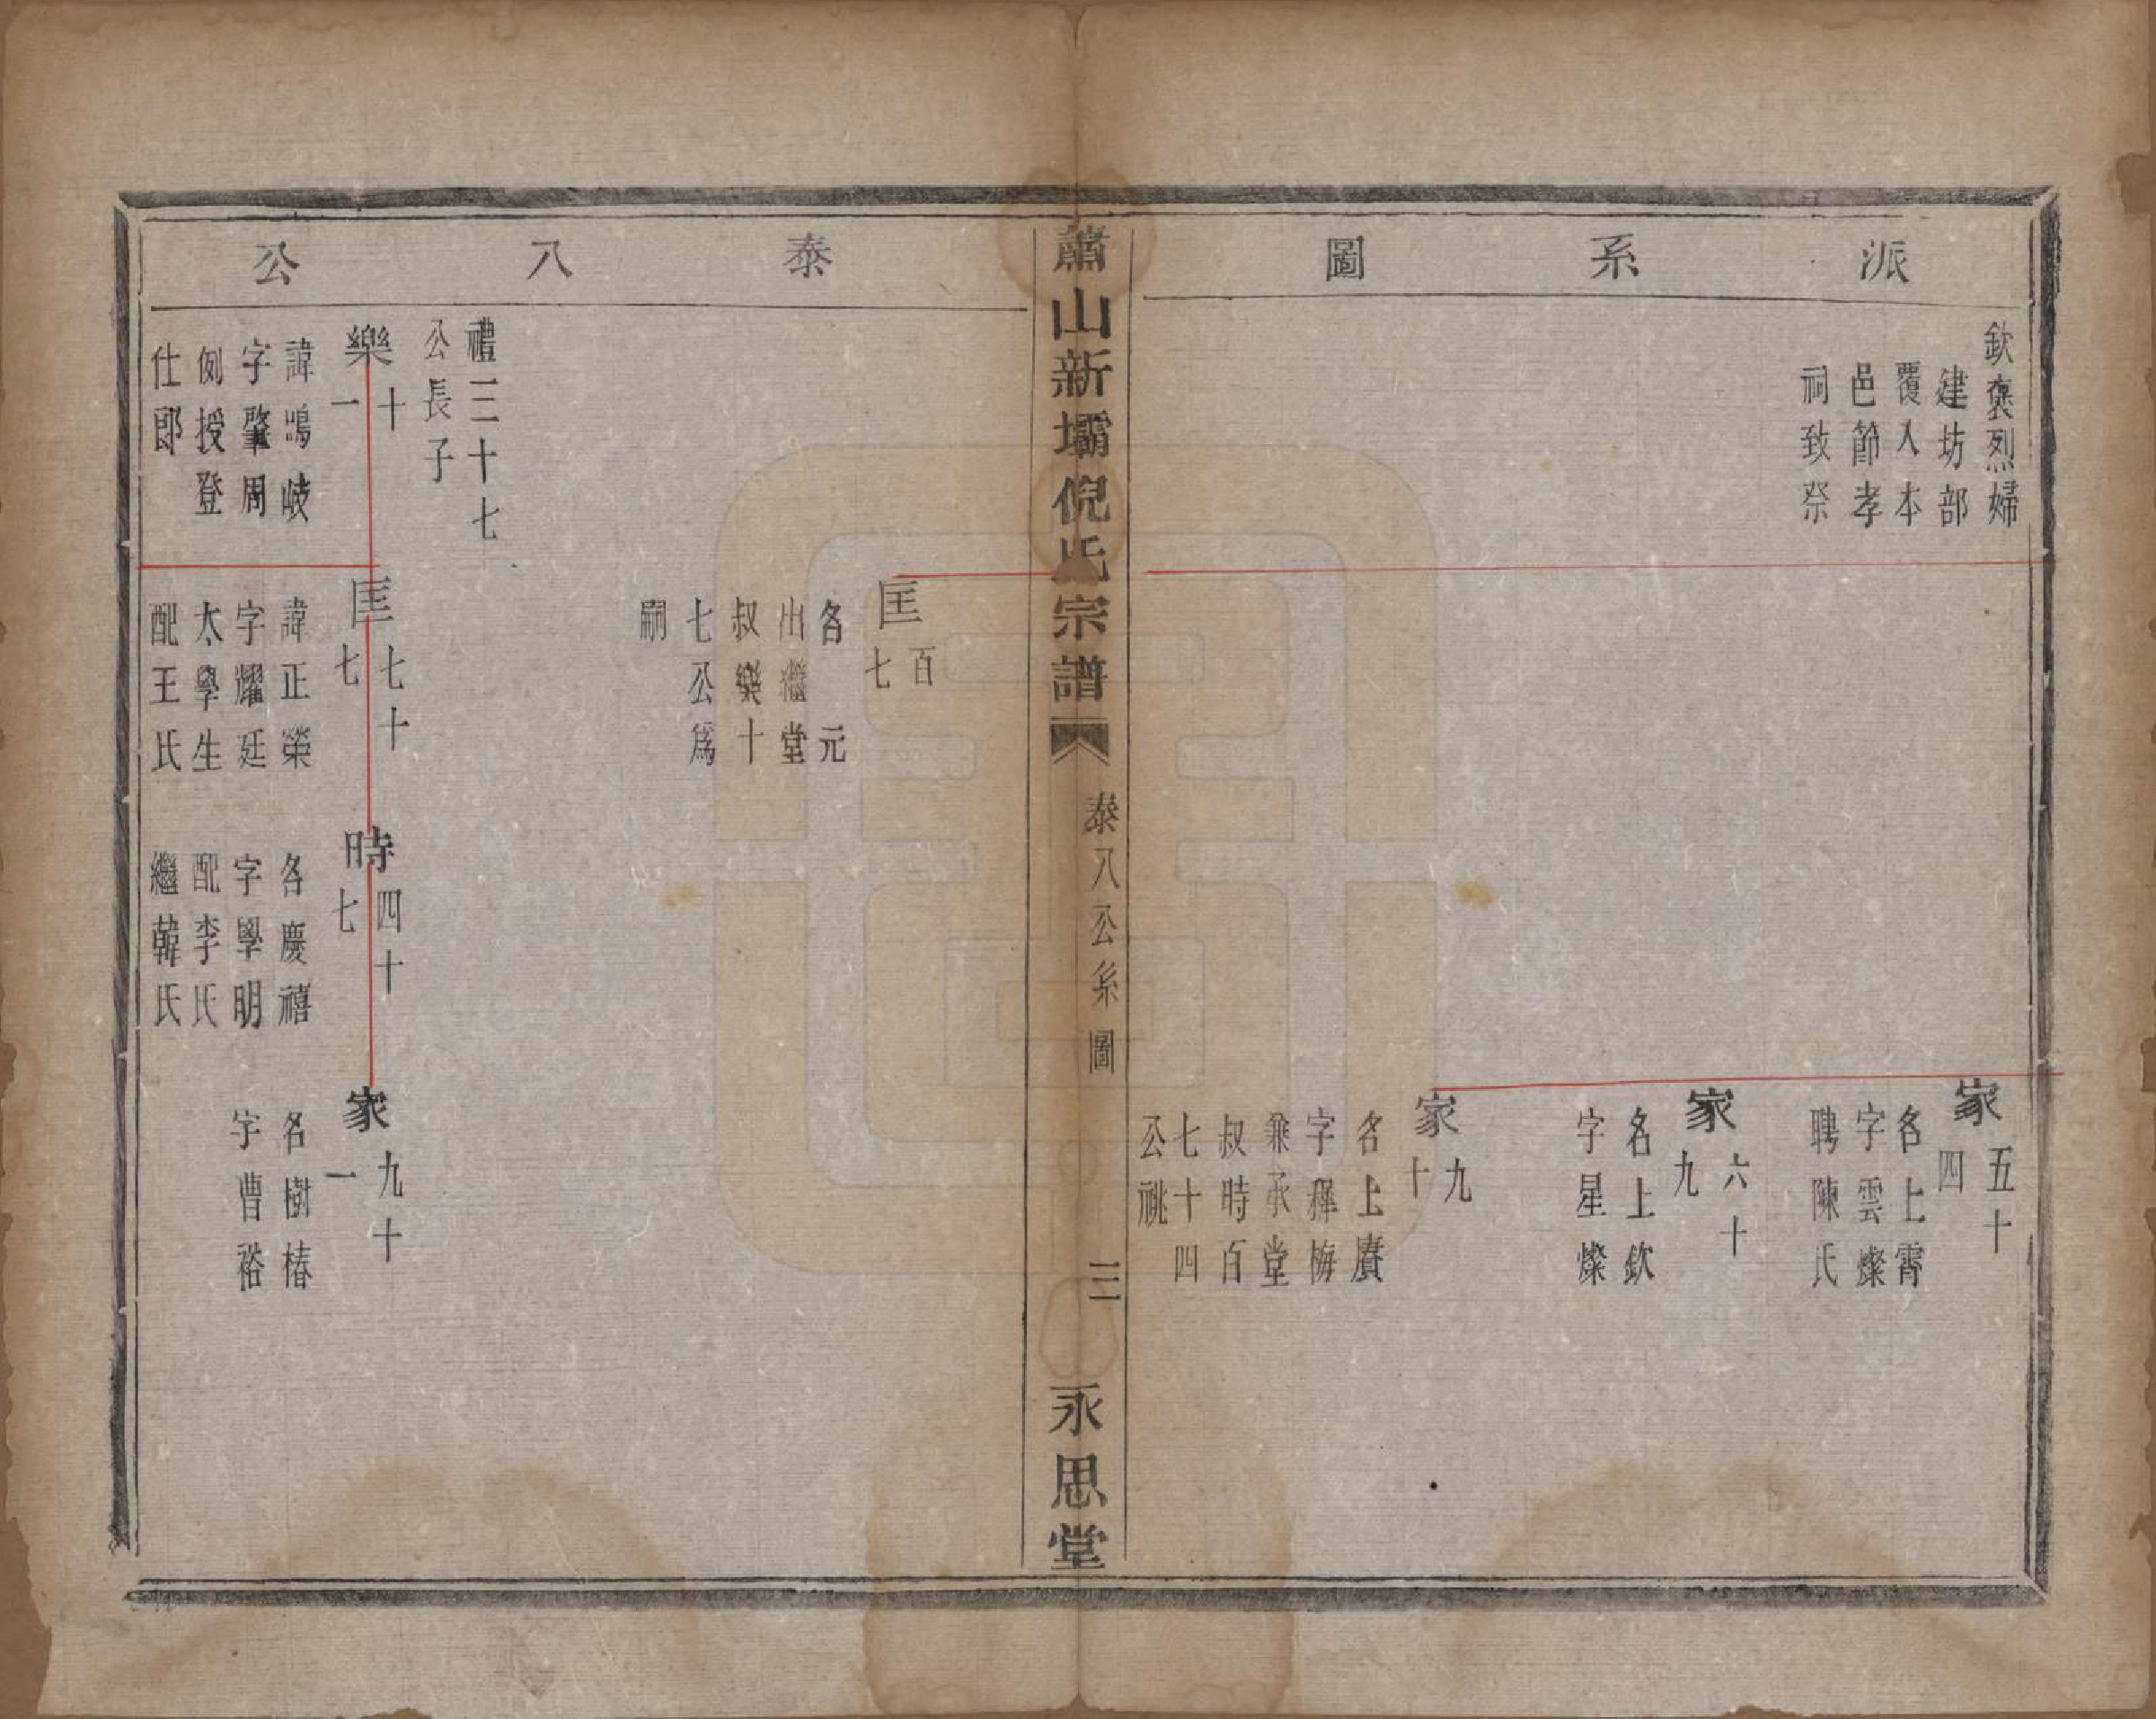 派系圖
欽褒烈婦
建坊部
覆入本
邑節孝
祠致祭
家五十
四
名上霄
字雲燦
聘陳氏
家六十
九
名上欽
字星燦
家九
十
名上賡
字穉梅
兼承堂
叔時百
七十四
公祧
蕭山新壩倪氏宗譜
泰八公系圖
三
永思堂
泰八公
匡百
七
名元
出繼堂
叔樂十
七公爲
嗣
禮三十七
公長子
樂十
一
諱鳴岐
字肇周
例授登
仕郎
匡七十
七
諱正榮
字耀廷
太學生
配王氏
時四十
七
名慶禧
字學明
配李氏
繼韓氏
家九十
一
名樹椿
字曹裕